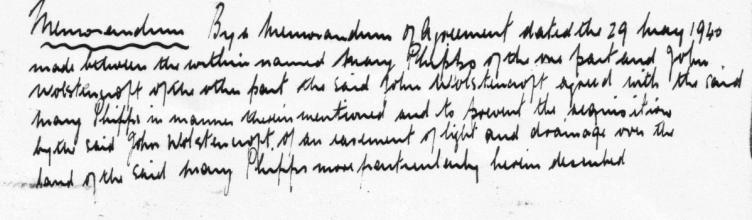 Memorandum By a Memorandum of Agreement dated the 29 May 1940
made between the within named Mary Phipps of the one part and John
Wolstencroft of the other part the said John Wolstencroft agreed with the said
Mary Phipps in manner therein mentioned and to prevent the acquisition
by the said John Wolstencroft of an easement of light and drainage over the
land of the said Mary Phipps more particularly herein described